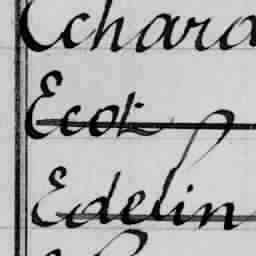 Echard
Ecot
Edelin